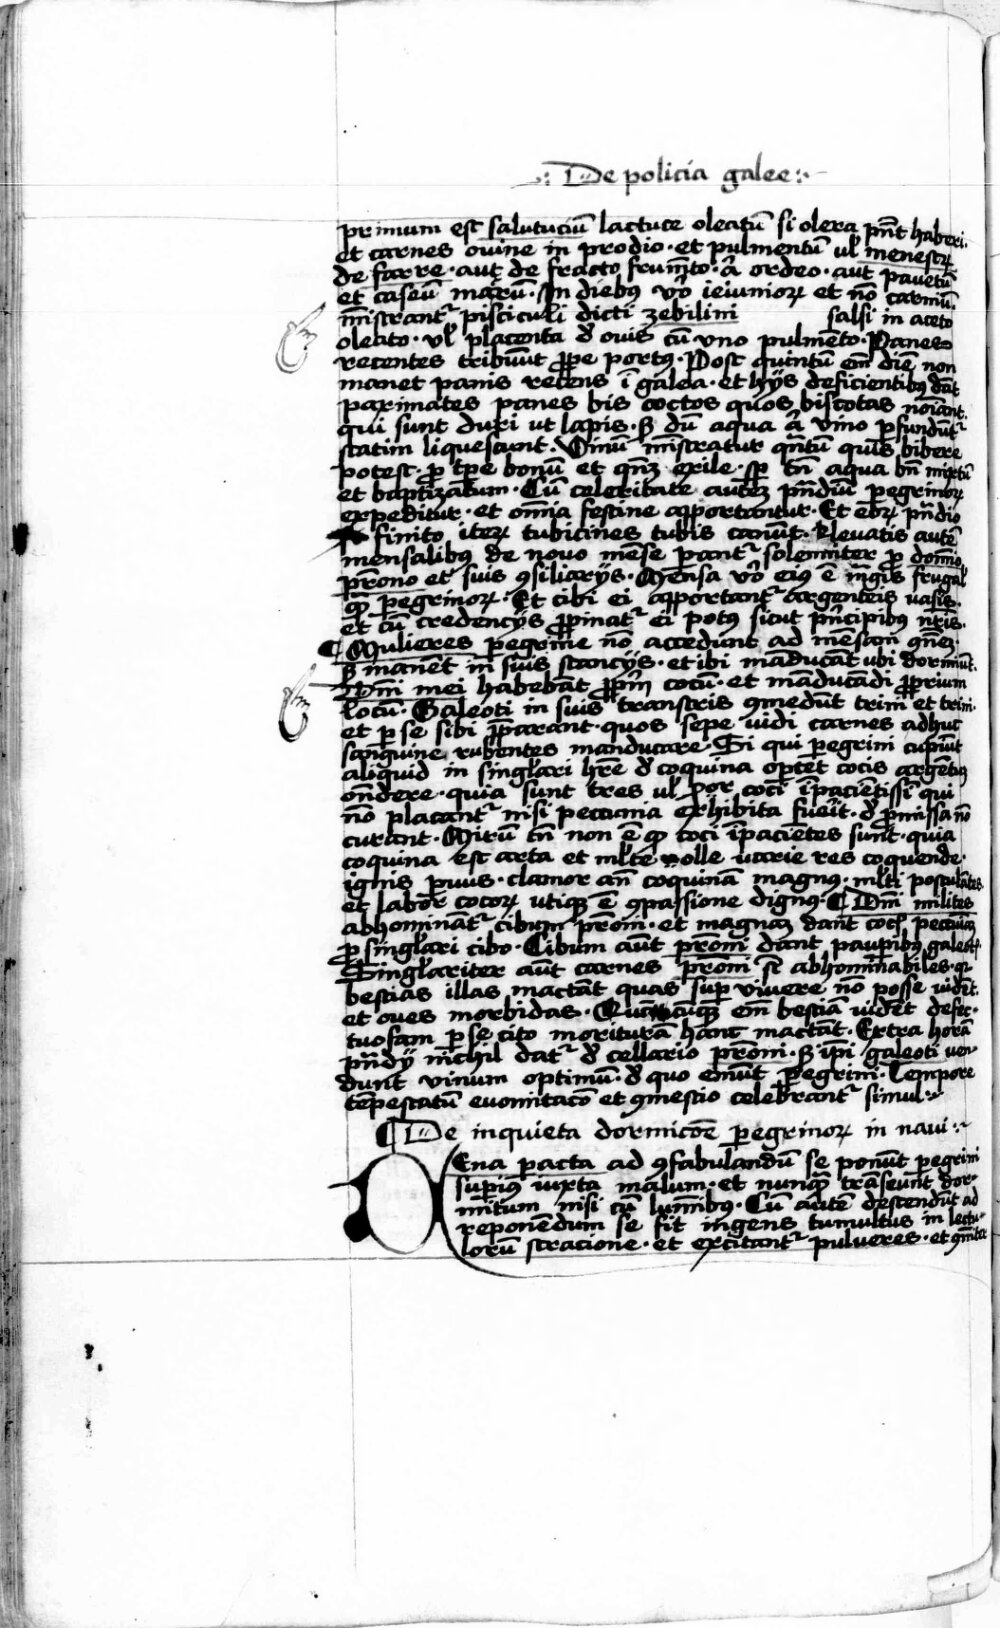 De policia galee
primum est salutuciū lactuce oleatū si olera pn̄t haberi.
et carnes ouine in prodio · et pulmentū ul̓ menestrꝫ
de farre · aut de fracto frum̄to · a̓ ordeo · aut pauetū
et caseū macrū · In diebꝯ vo̓ ieiuniorꝝ et nō carniū.
m̄istrant᷑ pisciculi dicti zebilini salsi in aceto
oleato · vl̓ placenta d̓ ouis cū vno pulmēto · Panes
recentes tribuūt ꝓpe portꝯ · Post quintū em̄ diē non
manet panis recens ī galea · et hijs deficientibꝯ dāt
paximates panes bis coctos quos biscotas noīant.
qui sunt duri ut lapis · sꝫ dū aqua a̓ vino ꝑfundūt᷑
statim liquescunt. Vinū m̄istratur qn̄tū quis bibere
potest · ꝑ tp̄e bonū et qn̄qꝫ exile · sꝑ tn̄ aqua bn̄ mixtū
et baptizatum · Cū celeritate autē pn̄diū pegrinorꝝ
expeditur · et om̄ia festine apportantur · Et eorꝝ pn̄dio
finito iterꝝ tubicines tubis canūt · Eleuatis autē
mensalibꝯ de nouo mēse parant᷑ solenniter ꝓ domīo
prōno et suis ꝯsiliarijs · Mensa vo̓ eiꝯ ē m̄gis frugal̓
qꝫ pegrinorꝝ · Et cibi ei apportant᷑ argenteis uasis.
et cū credencijs ꝓpinat᷑ ei potꝯ sicut pn̄cipibꝯ nr̄is.
¶ Mulieres pegrine nō accedunt ad mēsam
sꝫ manēt in suis stancijs · et ibi māducāt ubi dormiūt.
Dn̄i mei habebāt ꝓpriū cocū · et māducādi ꝓprium
locū · Galeoti in suis transtris ꝯmedūt trini et trini.
et ꝑ se sibi p̄parant · quos sepe uidi carnes adhuc
sanguine rubentes manducare · Si qui pegrini cupiūt
aliquid in singl̓ari hr̄e d̓ coquina optet cocis argētū
on̄dere · quia sunt tres ul̓ q̄tuor coci īpacientissi qui
nō placant᷑ nisi peccunia exhibita fuerit · d̓ ꝓmissa nō
curant · Mirū tn̄ non ē qꝫ coci īpaciētes sunt · quia
coquina est arta et ml̓te olle uarie res coquende.
ignis paruus · clamor an̄ coquinam magnꝯ · ml̓ti postulātes
et labor cocorꝝ utiqꝫ ē ꝯpassione dignꝯ · ¶ Dn̄i milites
abhominant᷑ cibum prōni · et magnam dant cocis peccuniam
ꝓ singl̓ari cibo · Cibum aut̄ prōni dant pauꝑibꝯ galeot̄.
Singl̓ariter aut̄ carnes prōni sūt abhominabiles · qꝫ
bestias illas mactāt quas suꝑ viuere nō posse uidēt.
et oues morbidas · Quācūqꝫ em̄ bestiā uidēt defec
tuosam ꝑ se cito morituram hanc mactāt · Extra horā
pn̄dij nichil dat᷑ d̓ cellario prōni · sꝫ ip̄i galeoti ven
dunt vinum optimū · d̓ quo emūt pegrini · Tempore
tēpestatū euomitacō et ꝯmestio celebrant᷑ simul
¶ De inquieta dormicōe pegrinorꝝ in naui
Cena pacta ad ꝯfabulandū se ponūt pegrini
supiꝯ iuxta malum · et nunqꝫ trāseunt dor
mitum nisi cū luminibꝯ · Cū autē descendūt ad
reponendum se fit ingens tumultus in lectu
lorū stracione · et excitant᷑ pulueres · et